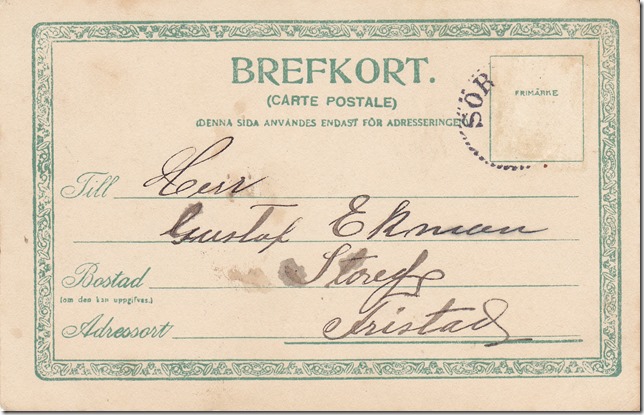 BREFKORT.
(CARTE POSTALE)
(DENNA SIDA ANVÄNDES ENDAST FÖR ADRESSERINGEN
FRIMÄRKE
SÖR
Till Herr
Gustaf Ekman
Bostad
(om den kan uppgifvas.)
Adressort Fristad